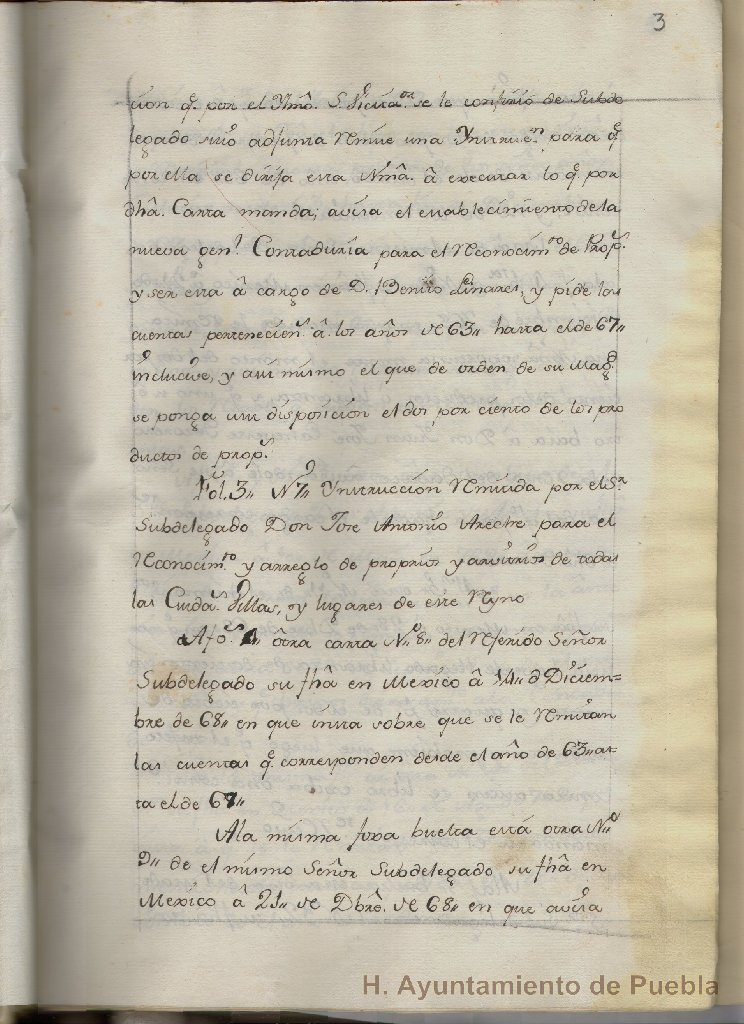 3
cion q.e por el Ylmô. S. Vicita.or se le confirió de Subde
legado suió adjunta Remite una Ynstruc.n para q.e
por ella se dirija esta Nmâ. â executar lo q.e por
dhâ. Carta manda; avisa el establecimiento de la
nueva gen.l Contaduria para el Reconocim.to de Prop.s
y ser esta â cargo de D. Benito Linares, y pide las
cuentas pertenecien.s â los años de 63,, hasta el de 67,,
inclucive, y asi mismo el que de orden de su Mag.d
se ponga â su disposicion el dos por ciento de los pro
ductos de prop.s
Fol. 3,, N.o 7,, Ynstruccion Remitida por el S.r
Subdelegado Don Jose Antonio Areche para el
Reconocim.to y arreglo de proprios y arvitrios de todas
las Ciuda.s Villas, y lugares de este Reyno
A fo.s otra carta N.o 8,, del Referido Señor
Subdelegado su fhâ en Mexico â 14,, d Diciem-
bre de 68,, en que insta sobre que se le Remitan
las cuentas q.e corresponden desde el año de 63,, as-
ta el de 67,,
A la misma foxa buelta está otra N.o
9,, de el mismo Señor Subdelegado su fhâ en
Mexico â 21,, de Dbrê. de 68,, en que avisa
H. Ayuntamiento de Puebla